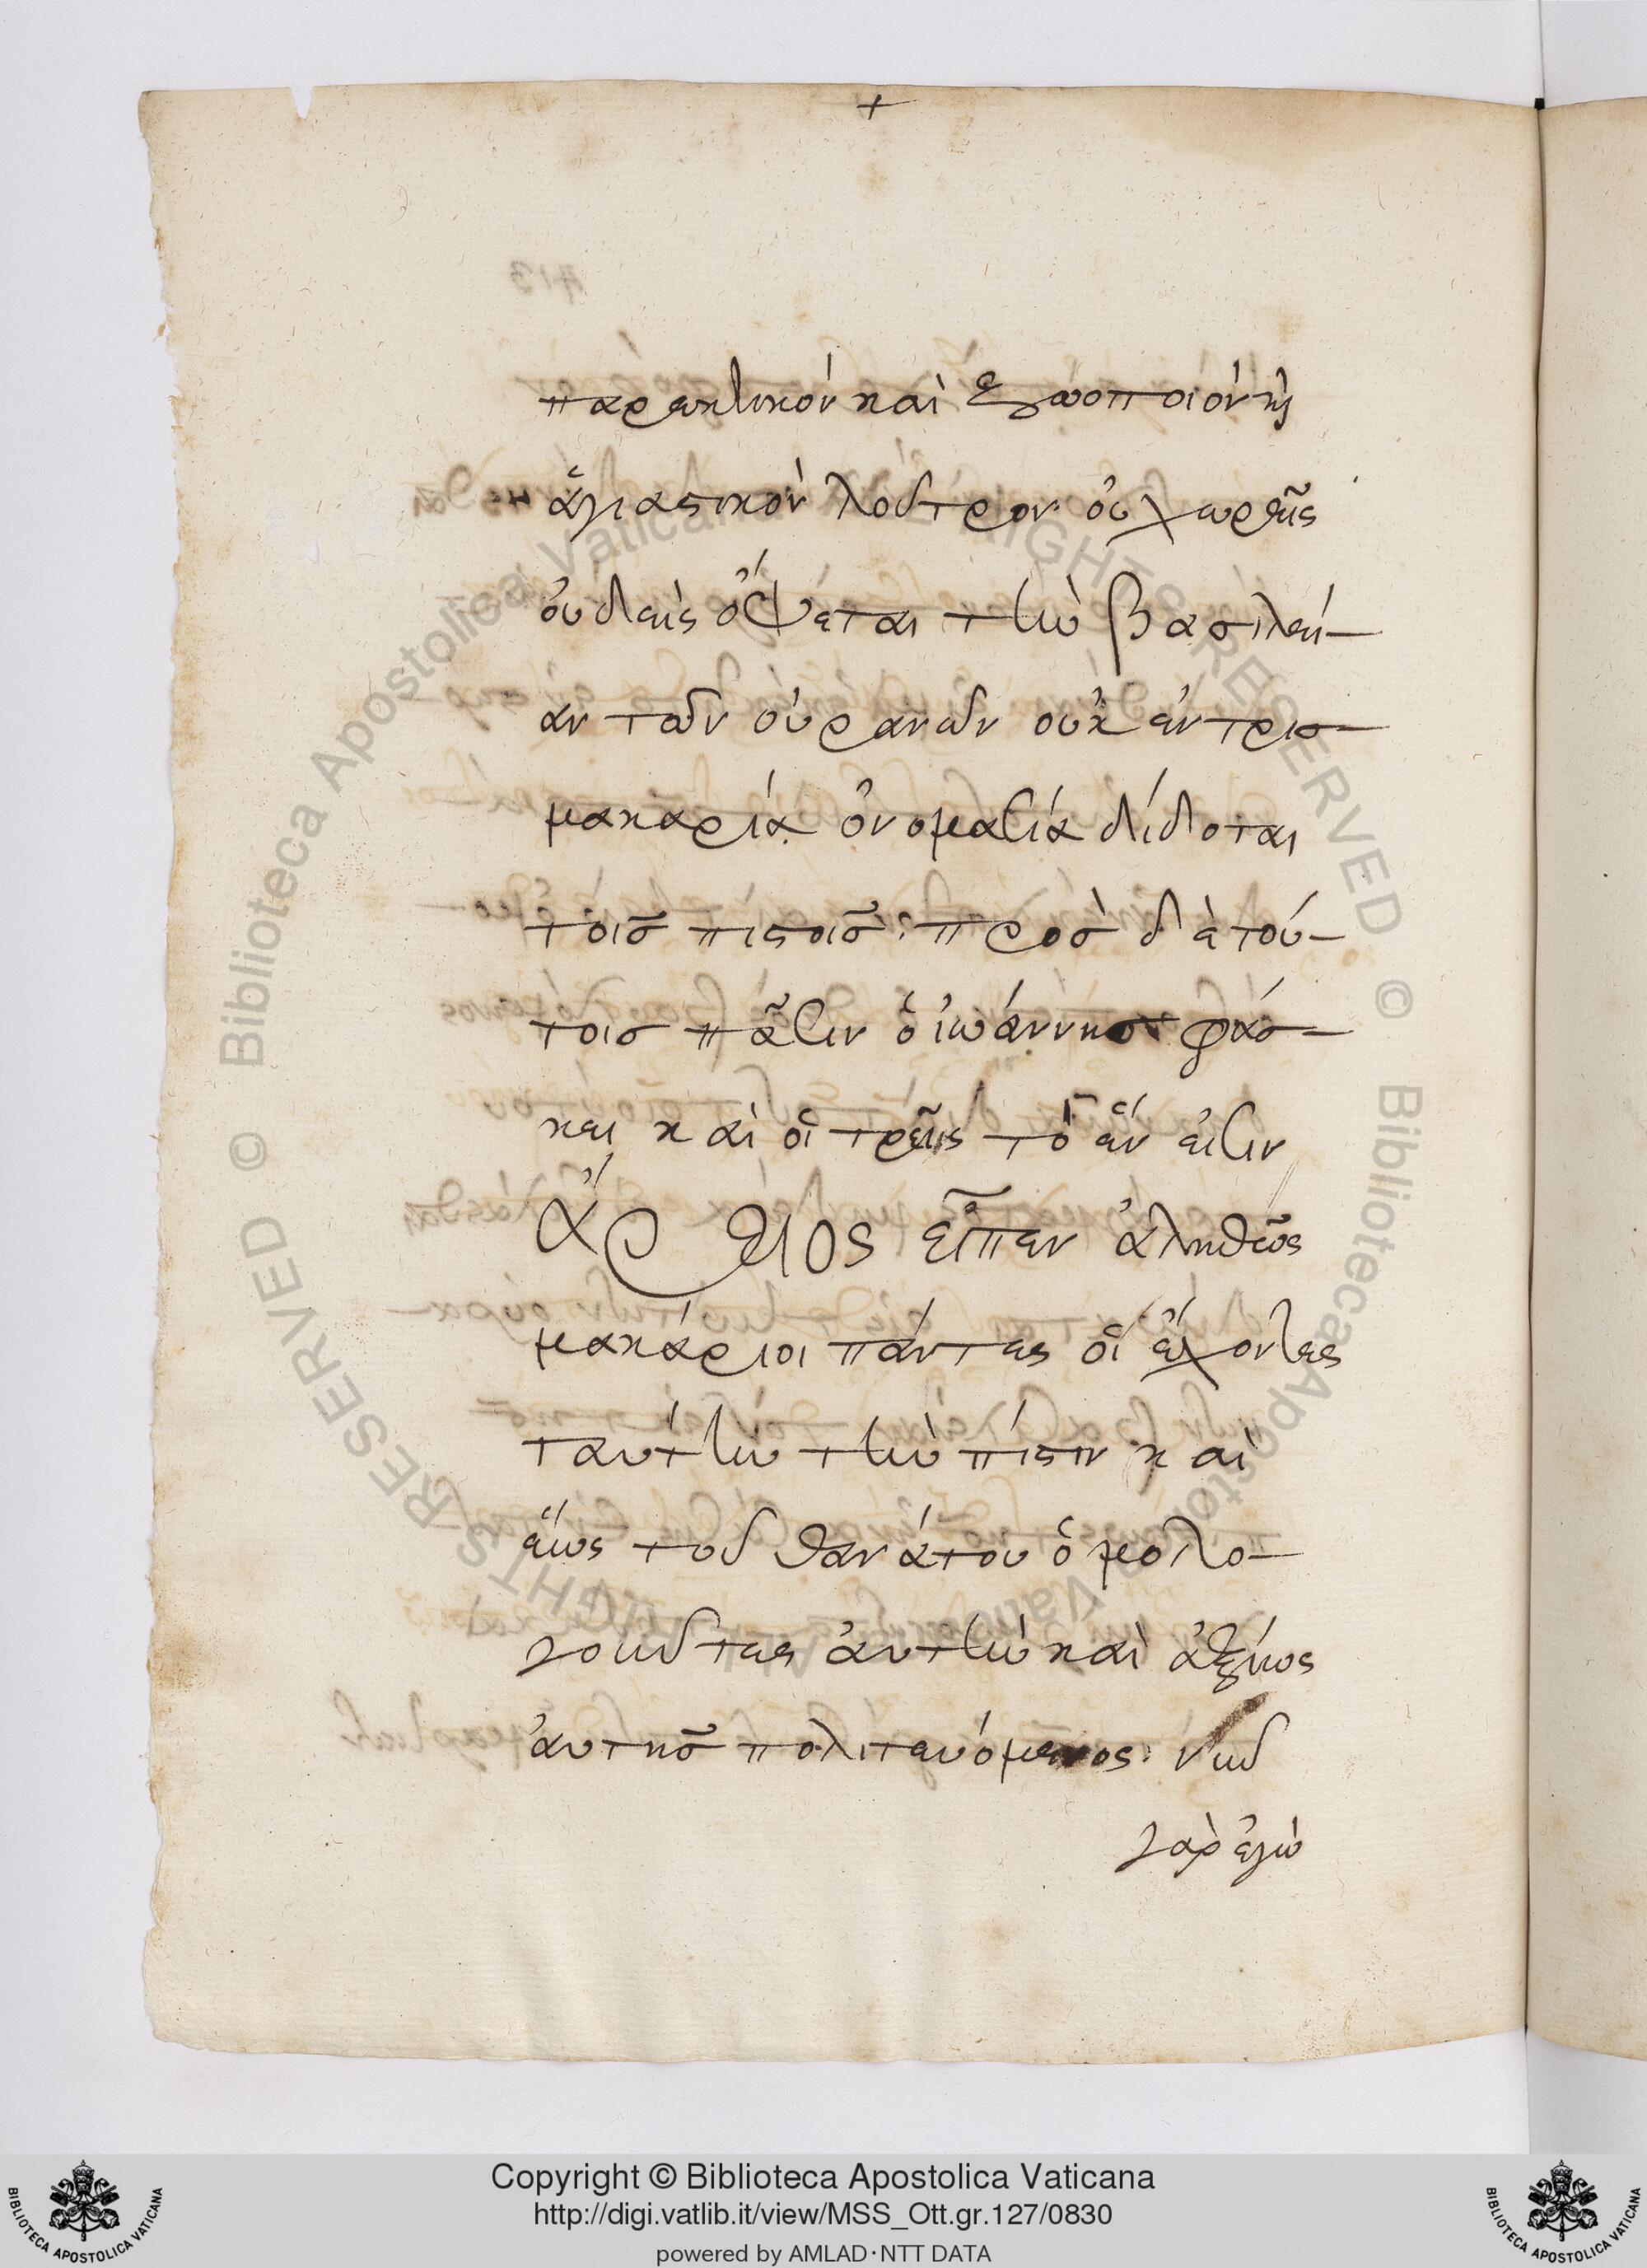 +
παρεκτικόν καὶ ζωοποιόν κ
ἁγιαστικόν λοῦτρον οὗ χωρεῖς
οὐδεὶς ὄψεται τὴν βασιλεί-
αν τῶν οὐρανῶν οὐκ ἐν τρισ-
μακαρία ὀνοματία δίδοται
τοῖσ πιστοῖσ: πρὸσ δὲ τού-
τοισ πᾶσιν ὁ ἰωάννησ φάσ-
κει καὶ οἱ τρεῖς τὸ ἕν εἰσιν
ἄρειος εἶπεν ἀληθῶς
μακάριοι πάντες οἱ ἔχοντες
ταύτην τὴν πίστιν καὶ
ἕως τοῦ θανάτου ὁμολο-
γοῦντες ἀυτὴν καὶ ἀξίως
ἀυτῆσ πολιτευόμενος· νῦν
γὰρ ἐγὼ
Copyright © Biblioteca Apostolica Vaticana
http://digi.vatlib.it/view/MSS_Ott.gr.127/0830
powered by AMLAD·NTT DATA
BIBLIOTECA APOSTOLICA VATICANA
BIBLIOTECA APOSTOLICA VATICANA
© Biblioteca Apostolica Vaticana ALL RIGHTS RESERVED © Biblioteca Apostolica Vaticana ALL RIGHTS RESERVED